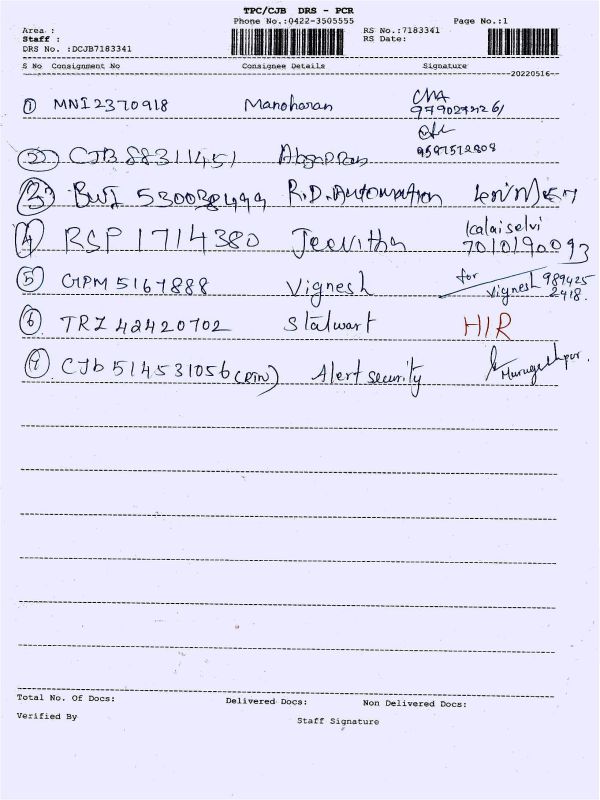 TPC/CJB DRS - PCR
Phone No.:0422-3505555 Page No.:1
Area :
Staff :
DRS No. :DCJB7183341
RS No.:7183341
RS Date:
S No Consignment No Consignee Details Signature
20220516
1 MNI2370918 Manoharan
2 CJB 88311451
9597512808
3 R.D. Automation
4 RSP 1714380 Jeevitha Kalaiselvi
7010190093
5 GPM 5167888 Vignesh for Vignesh 989425
2418.
6 TRZ 42420702 Stalwart HIR
7 CJb 514531056 Alert security
Total No. Of Docs: Delivered Docs: Non Delivered Docs:
Verified By Staff Signature